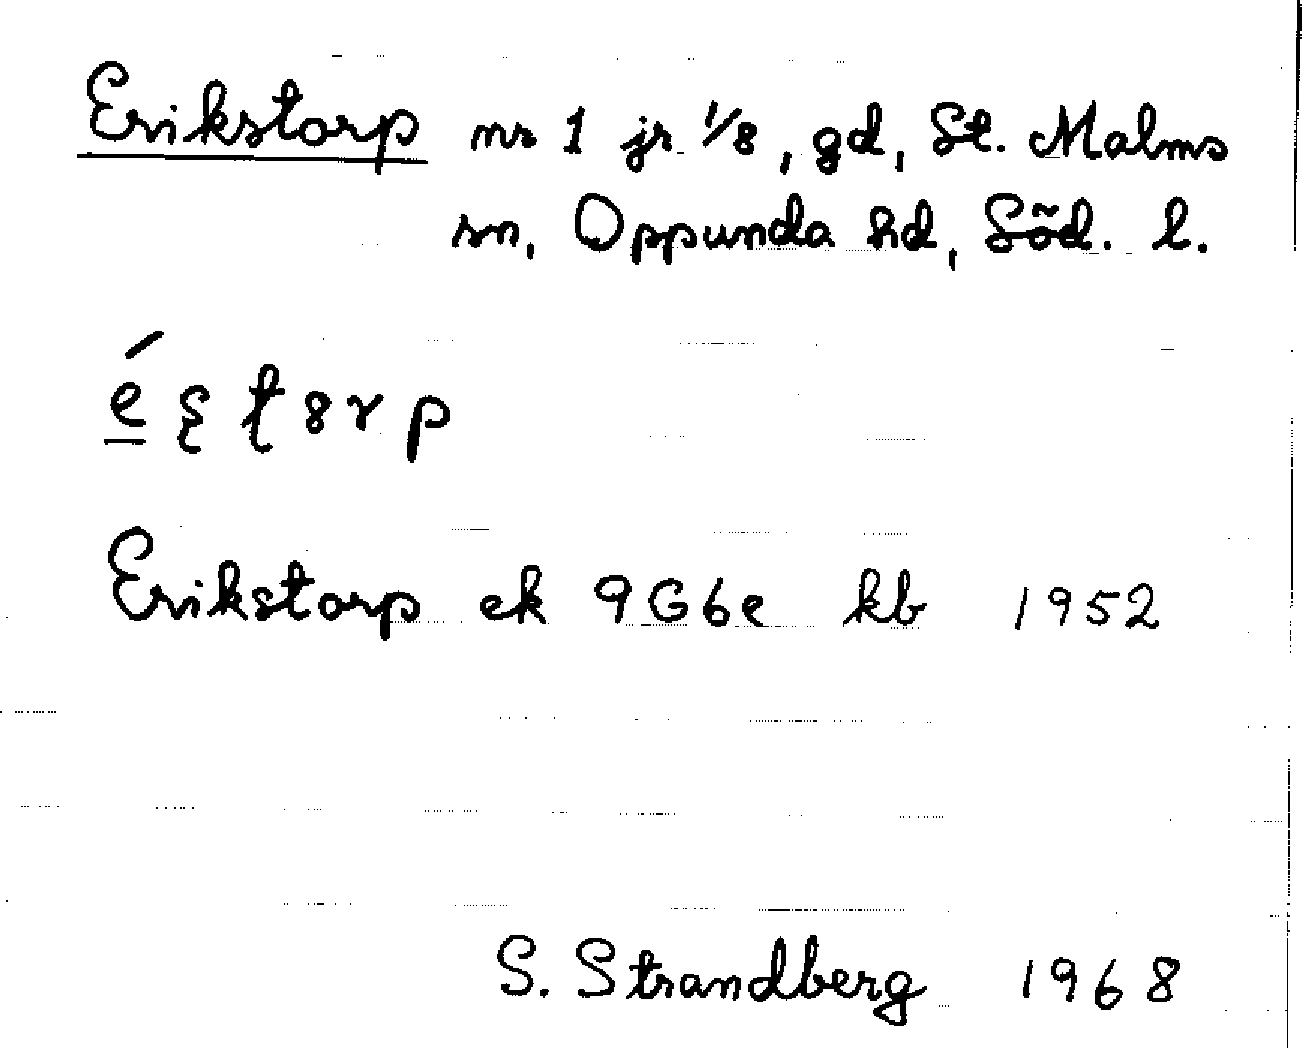 Erikstorp nr 1 jr 1/8, gd, St. Malms
sn, Oppunda hd, Söd. l.
Erikstorp ek 9G6e kb 1952
S. Strandberg 1968